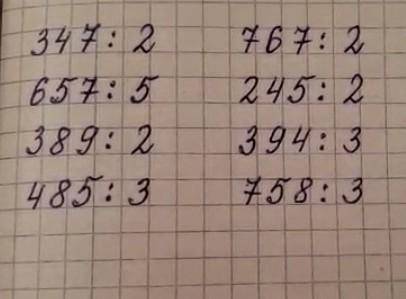 347 : 2 767 : 2
657 : 5 245 : 2
389 : 2 394 : 3
485 : 3 758 : 3